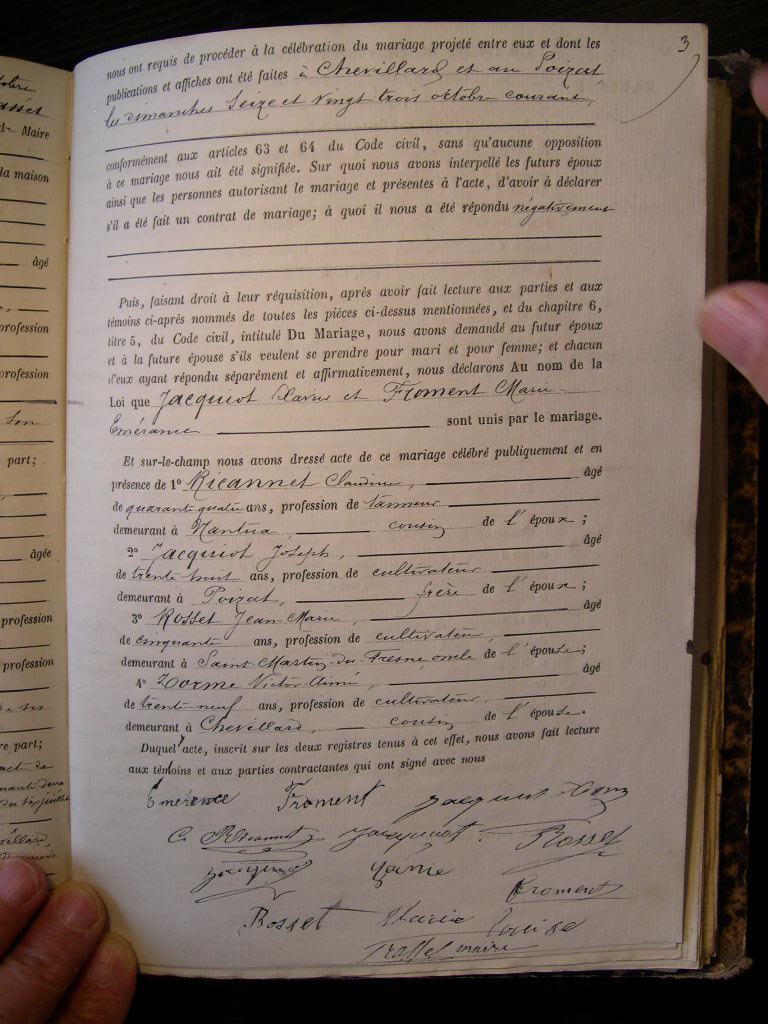 3
nous ont requis de procéder à la célébration du mariage projeté entre eux et dont les
publications et affiches ont été faites à Chevillard et au Poizat
les dimanches Seize et Vingt trois octobre courant,
conformément aux articles 63 et 64 du Code civil, sans qu'aucune opposition
à ce mariage nous ait été signifiée. Sur quoi nous avons interpellé les futurs époux
ainsi que les personnes autorisant le mariage et présentes à l'acte, d'avoir à déclarer
s'il a été fait un contrat de mariage; à quoi il nous a été répondu négativement
Puis, faisant droit à leur réquisition, après avoir fait lecture aux parties et aux
témoins ci-après nommés de toutes les pièces ci-dessus mentionnées, et du chapitre 6,
titre 5, du Code civil, intitulé Du Mariage, nous avons demandé au futur époux
et à la future épouse s'ils veulent se prendre pour mari et pour femme; et chacun
d'eux ayant répondu séparément et affirmativement, nous déclarons Au nom de la
Loi que Jacquiot Xavier et Froment Marie
Emérance sont unis par le mariage.
Et sur-le-champ nous avons dressé acte de ce mariage célébré publiquement et en
présence de 1° Ricannet Claudius, âgé
de quarante quatre ans, profession de tanneur
demeurant à Nantua, cousin de l'époux;
2° Jacquiot Joseph, âgé
de trente huit ans, profession de cultivateur
demeurant à Poizat, frère de l'époux;
3° Rosset Jean Marie, âgé
de cinquante ans, profession de cultivateur,
demeurant à Saint Martin-du-Fresne, oncle de l'épouse;
4° Zorme Victor Aimé, âgé
de trente-neuf ans, profession de cultivateur,
demeurant à Chevillard, cousin de l'épouse.
Duquel acte, inscrit sur les deux registres tenus à cet effet, nous avons fait lecture
aux témoins et aux parties contractantes qui ont signé avec nous
Emérence Froment Jacquiot
C. Ricannet Jacquiot Rosset
Froment
Rosset Marie Louise
maire
de Maire
la maison
âgé
profession
profession
son
part;
âgée
profession
profession
de ses
re part;
acte de